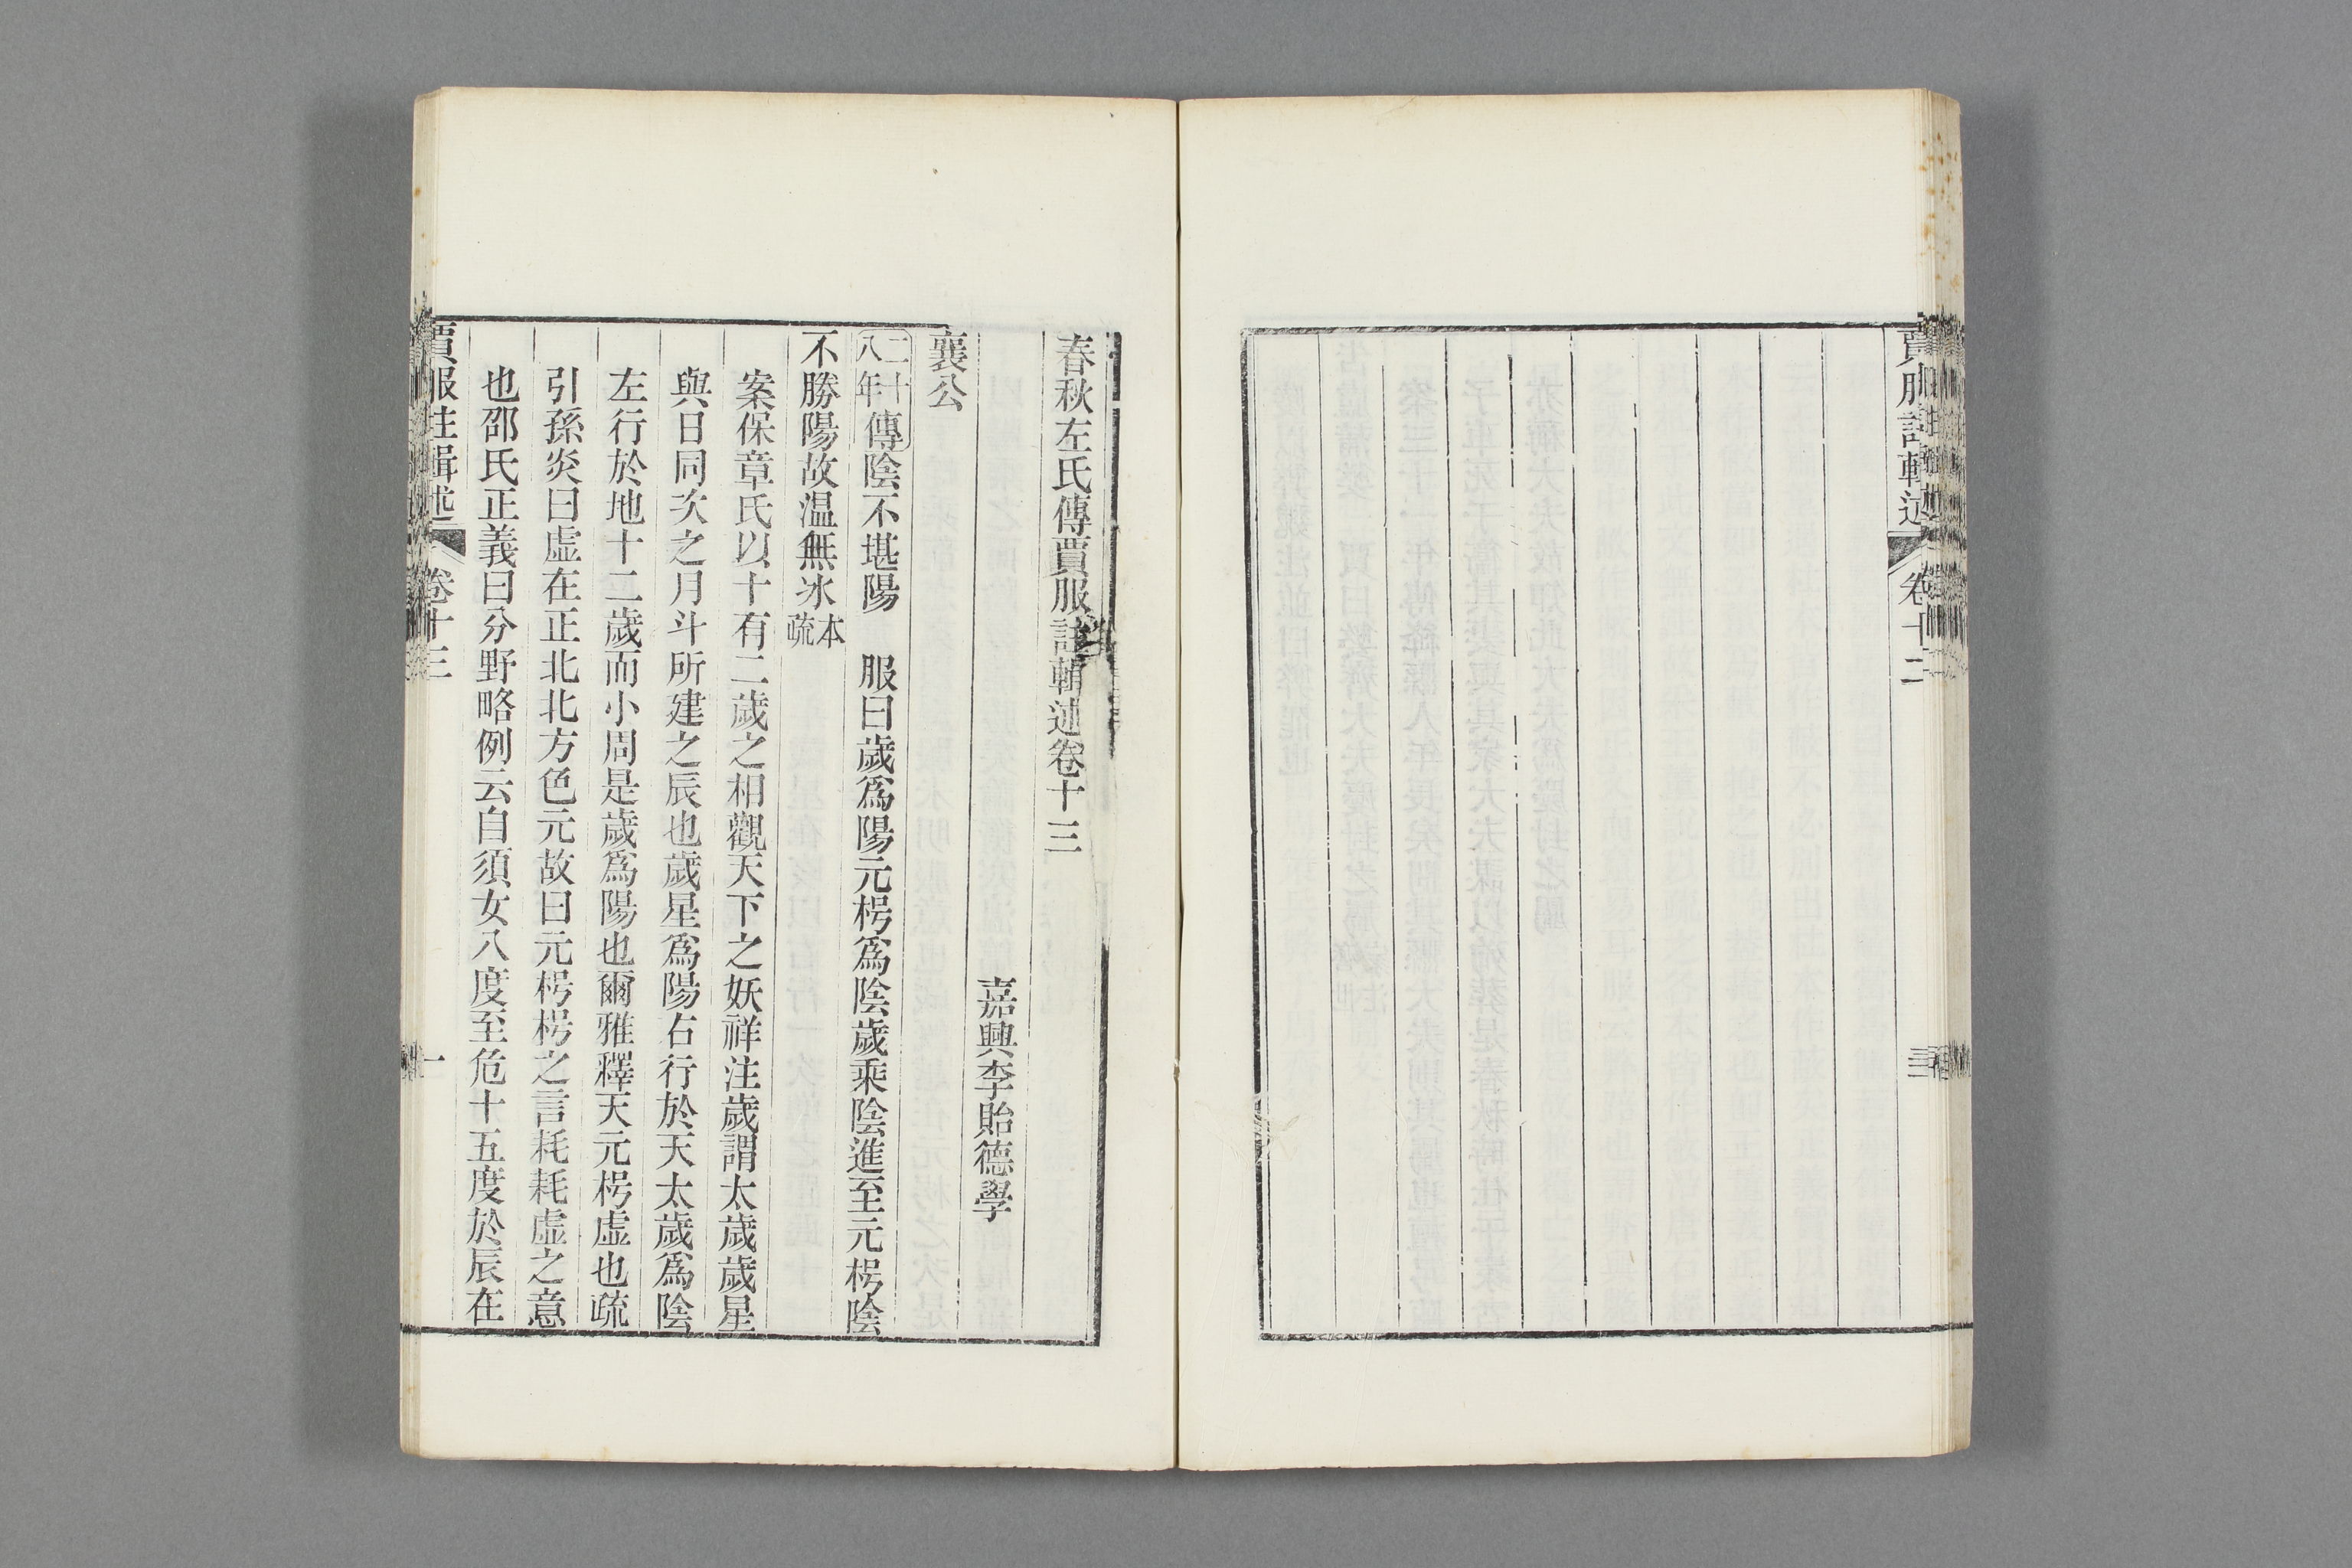 賈服註輯述
卷十二
春秋左氏傳賈服註輯述卷十三
嘉興李貽德學
襄公
二十八年傳陰不堪陽　服曰歲爲陽元枵爲陰歲乘陰進至元枵陰
不勝陽故温無冰本疏
案保章氏以十有二歲之相觀天下之妖祥注歲謂太歲歲星
與日同次之月斗所建之辰也歲星爲陽右行於天太歲爲陰
左行於地十二歲而小周是歲爲陽也爾雅釋天元枵虛也疏
引孫炎曰虛在正北北方色元故曰元枵枵之言耗耗虛之意
也邵氏正義曰分野略例云自須女八度至危十五度於辰在
賈服註輯述
卷十三
一